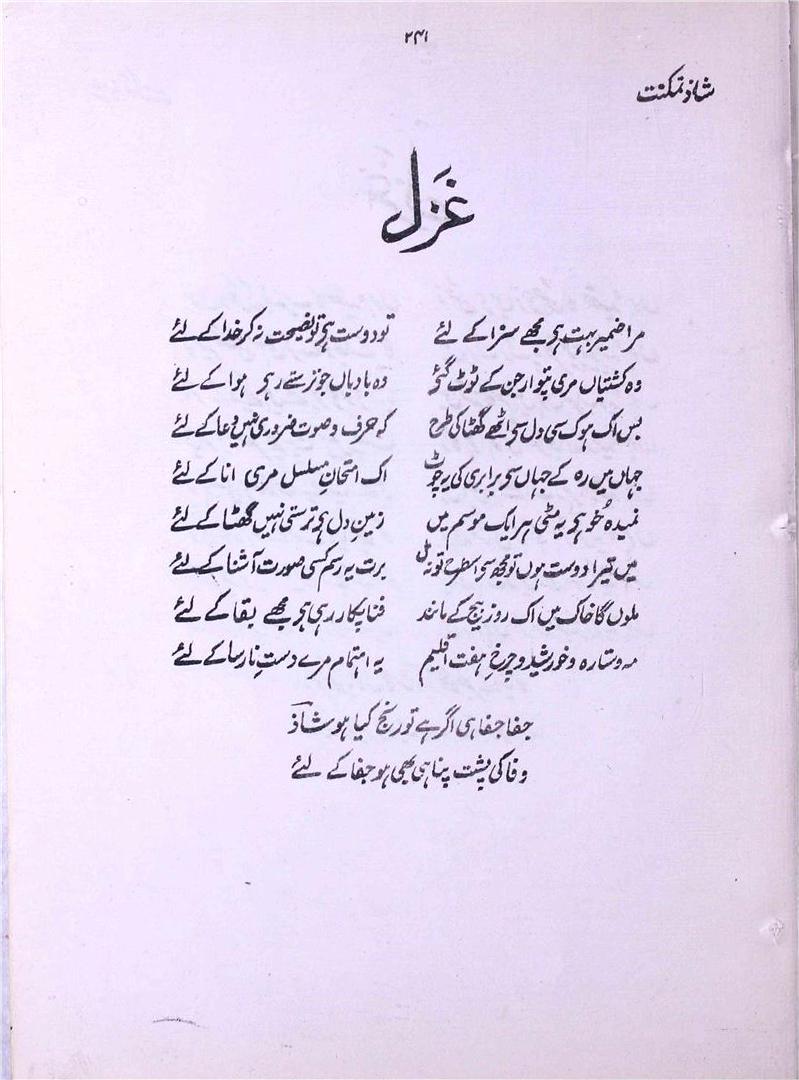 ۲۴۱
شاذ تمکنت
غزل
مرا ضمیر بہت ہے مجھے سزا کے لئے تو دوست ہے تو نصیحت نہ کر خدا کے لئے
وہ کشتیاں مری پتوار جن کے ٹوٹ گئے وہ بادباں جو ترستے رہے ہوا کے لئے
بس اک ہوک سی دل سے اٹھے گھٹا کی طرح کہ حرف و صوت ضروری نہیں دعا کے لئے
جہاں میں رہ کے جہاں سے برابری کی یہ چوٹ اک امتحانِ مسلسل مری انا کے لئے
نمیدہ خو ہے یہ مٹی ہر ایک موسم میں زمینِ دل ہے ترستی نہیں گھٹا کے لئے
میں تیرا دوست ہوں تو مجھ سے اسطرح تو نہ مل برت یہ رسم کسی صورت آشنا کے لئے
ملوں گا خاک میں اک روز بیج کے مانند فنا پکار رہی ہے مجھے بقا کے لئے
مہ و ستارہ و خورشید و چرخِ ہفت اقلیم یہ اہتمام مرے دستِ نارسا کے لئے
جفا جفا ہی اگر ہے تو رنج کیا ہو شاذ
وفا کی پشت پناہی بھی ہو جفا کے لئے